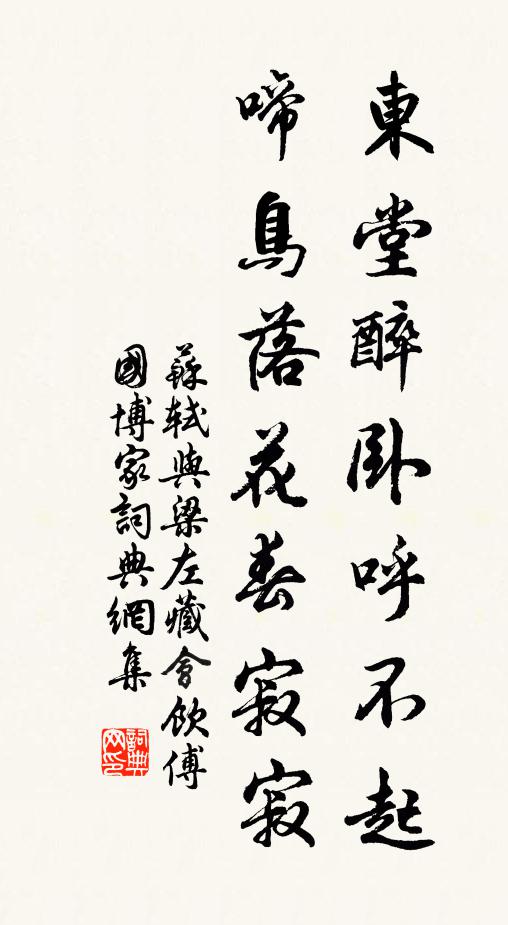 東堂醉臥呼不起
啼鳥落花春寂寂
蘇軾與梁左藏會飲傅
國博家詞典網集
詞典
网印